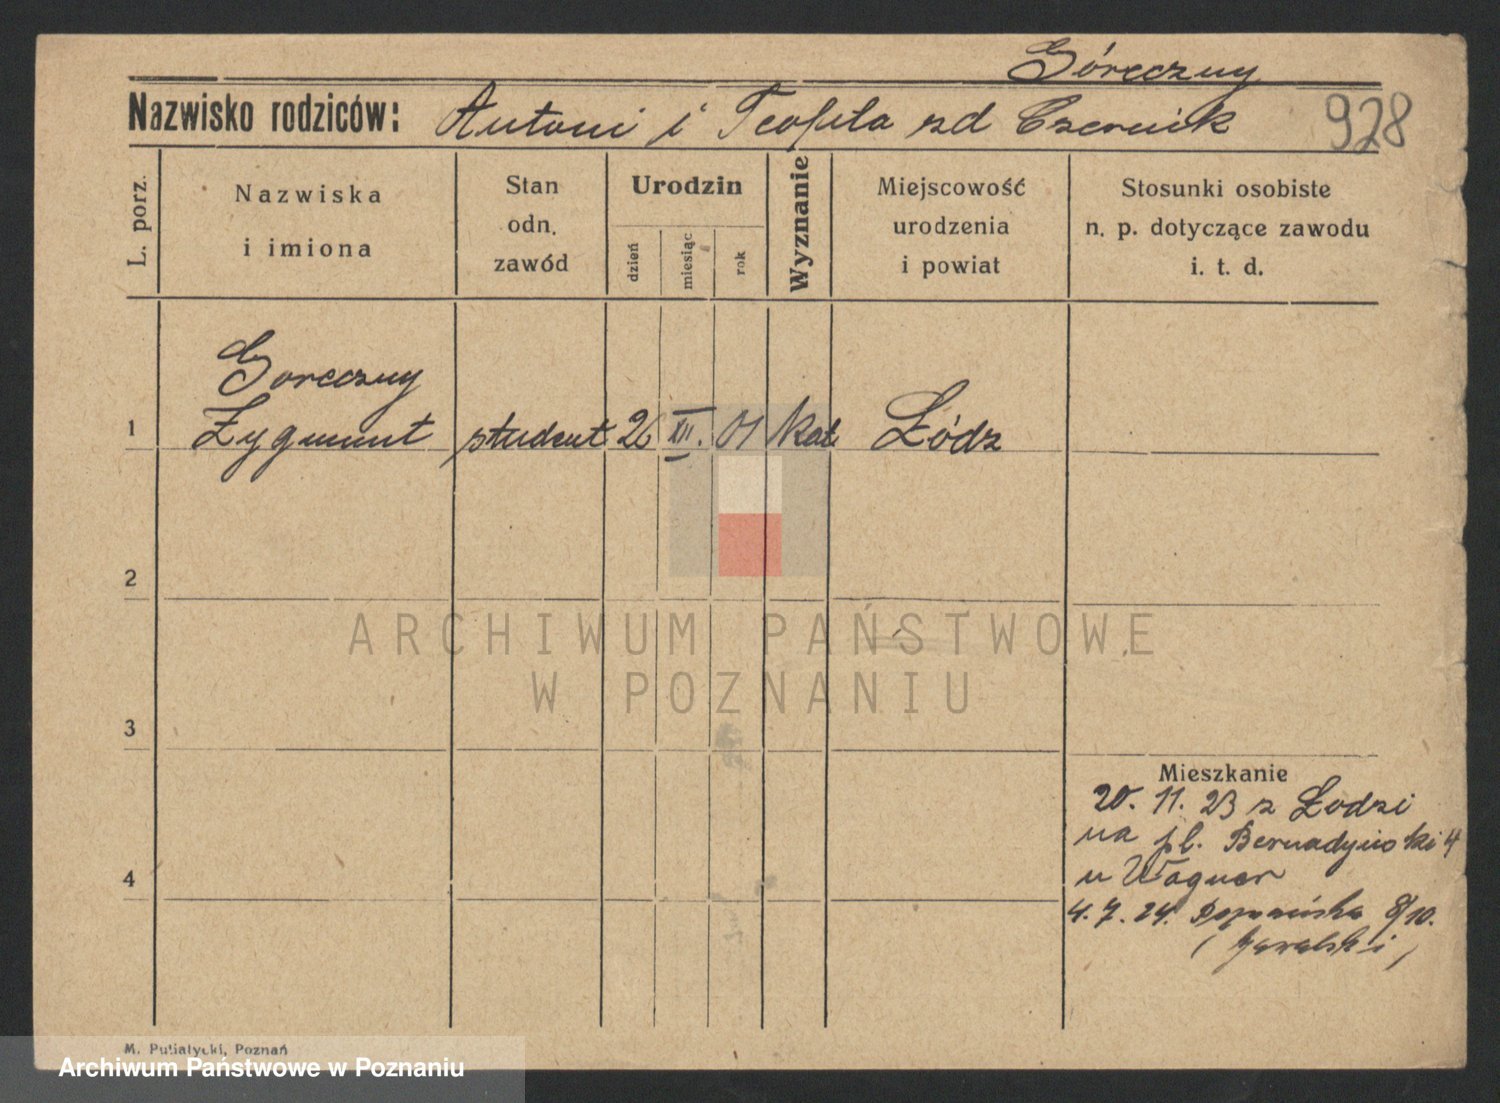 Góreczny
Nazwisko rodziców: Antoni i Teofila zd Czernik 928
L. porz.
Nazwiska
i imiona
Stan
odn.
zawód
Urodzin
dzień
miesiąc
rok
Wyznanie
Miejscowość
urodzenia
i powiat
Stosunki osobiste
n. p. dotyczące zawodu
i. t. d.
Goreczny
1 Zygmunt student 26 XII. 01 Kat Łódz
2
3
4
ARCHIWUM PAŃSTWOWE
W POZNANIU
Mieszkanie
20. 11. 23 z Łodzi
na pl. Bernadyński 4
u Wagner
4. 7. 24. 8/10.
M. Putiatycki, Poznań
Archiwum Państwowe w Poznaniu